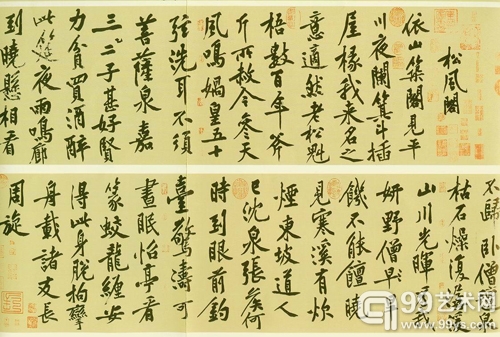 松風閣
依山築閣見平
川夜闌箕斗插
屋椽我來名之
意適然老松魁
梧數百年斧
斤所赦今參天
風鳴媧皇五十
弦洗耳不須
菩薩泉嘉
三二子甚好賢
力貧買酒醉
此筵夜雨鳴廊
到曉懸相看
不歸臥僧氈泉
枯石燥復潺湲
山川光暉為我
妍野僧早
飢不能饘曉
見寒溪有炊
煙東坡道人
已沈泉張侯何
時到眼前釣
臺驚濤可
晝眠怡亭看
篆蛟龍纏安
得此身脫拘攣
舟載諸友長
周旋
99艺术网
www.99ys.com